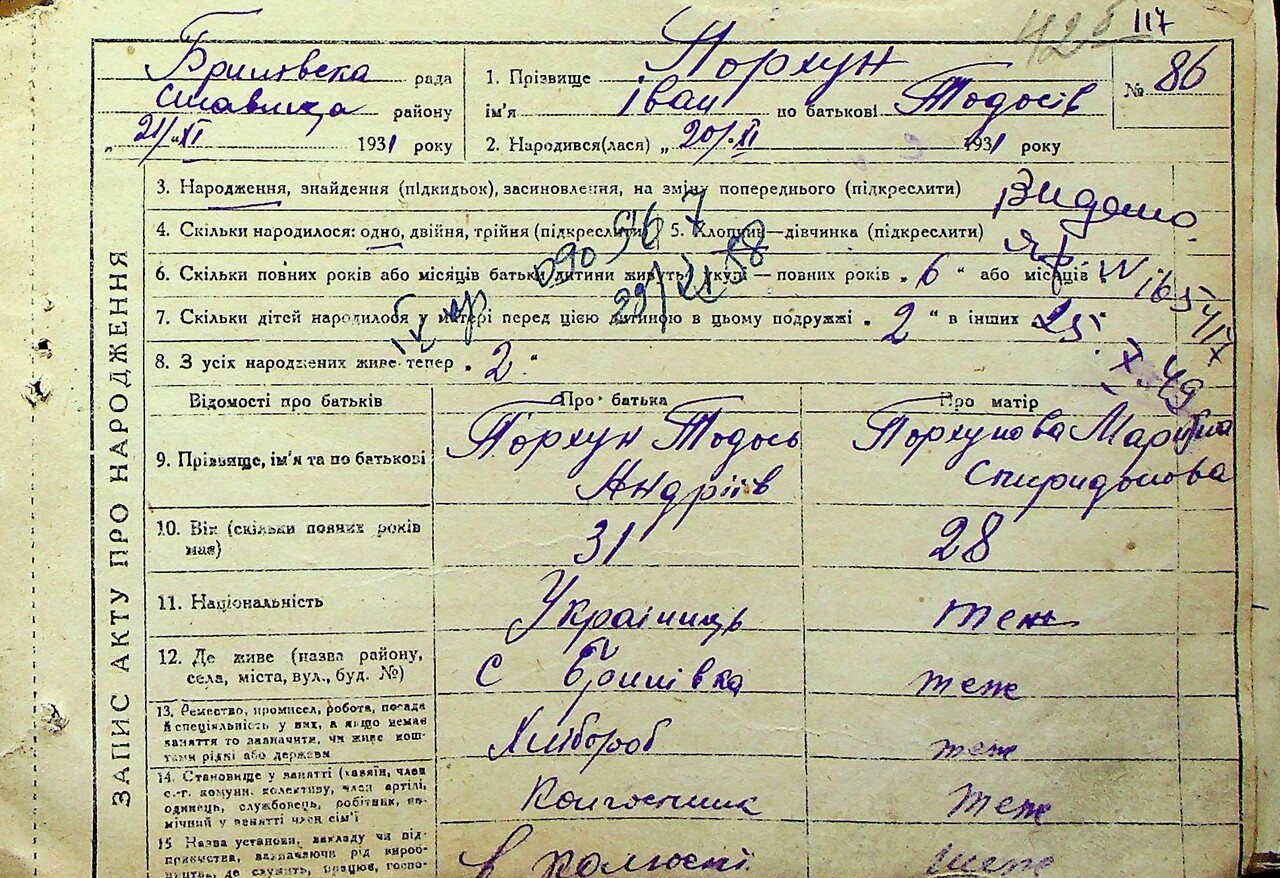 117
рада
району
21/XI 1931 року
1. Прізвище Порхун
ім'я Іван по батькові Тодосів
2. Народився(лася) „ 20/XI 1931 року
№ 86
ЗАПИС АКТУ ПРО НАРОДЖЕННЯ
3. Народження, знайдення (підкидьок), засиновлення, на зміну попереднього (підкреслити)
Видано
4. Скільки народилося: одно, двійня, трійня (підкреслити) 5. Хлопчик—дівчинка (підкреслити)
6. Скільки повних років або місяців батьки дитини живуть укупі — повних років „ 6 “ або місяців
7. Скільки дітей народилося у матері перед цією дитиною в цьому подружжі „ 2 “ в інших
8. З усіх народжених живе тепер „ 2 “
Відомості про батьків Про батька Про матір
9. Прізвище, ім'я та по батькові
Порхун Тодось
Андріїв
Порхунова
Спиридонова
10. Вік (скільки повних років
має)
31 28
11. Національність Українець теж
12. Де живе (назва району,
села, міста, вул., буд. №)
с теж
13. Ремество, промисел, робота, посада
й спеціяльність у них, а якщо немає
заняття то зазначити, чи живе кош-
тами рідні або держави
Хлібороб теж
14. Становище у занятті (хазяїн, член
с.-г. комуни, колективу, член артілі,
одинець, службовець, робітник, по-
мічний у занятті член сім'ї
Колгоспник теж
15 Назва установи, закладу чи під-
приємства, зазначаючи рід вироб-
ництва, де служить, працює, госпо-
в колгоспі теж